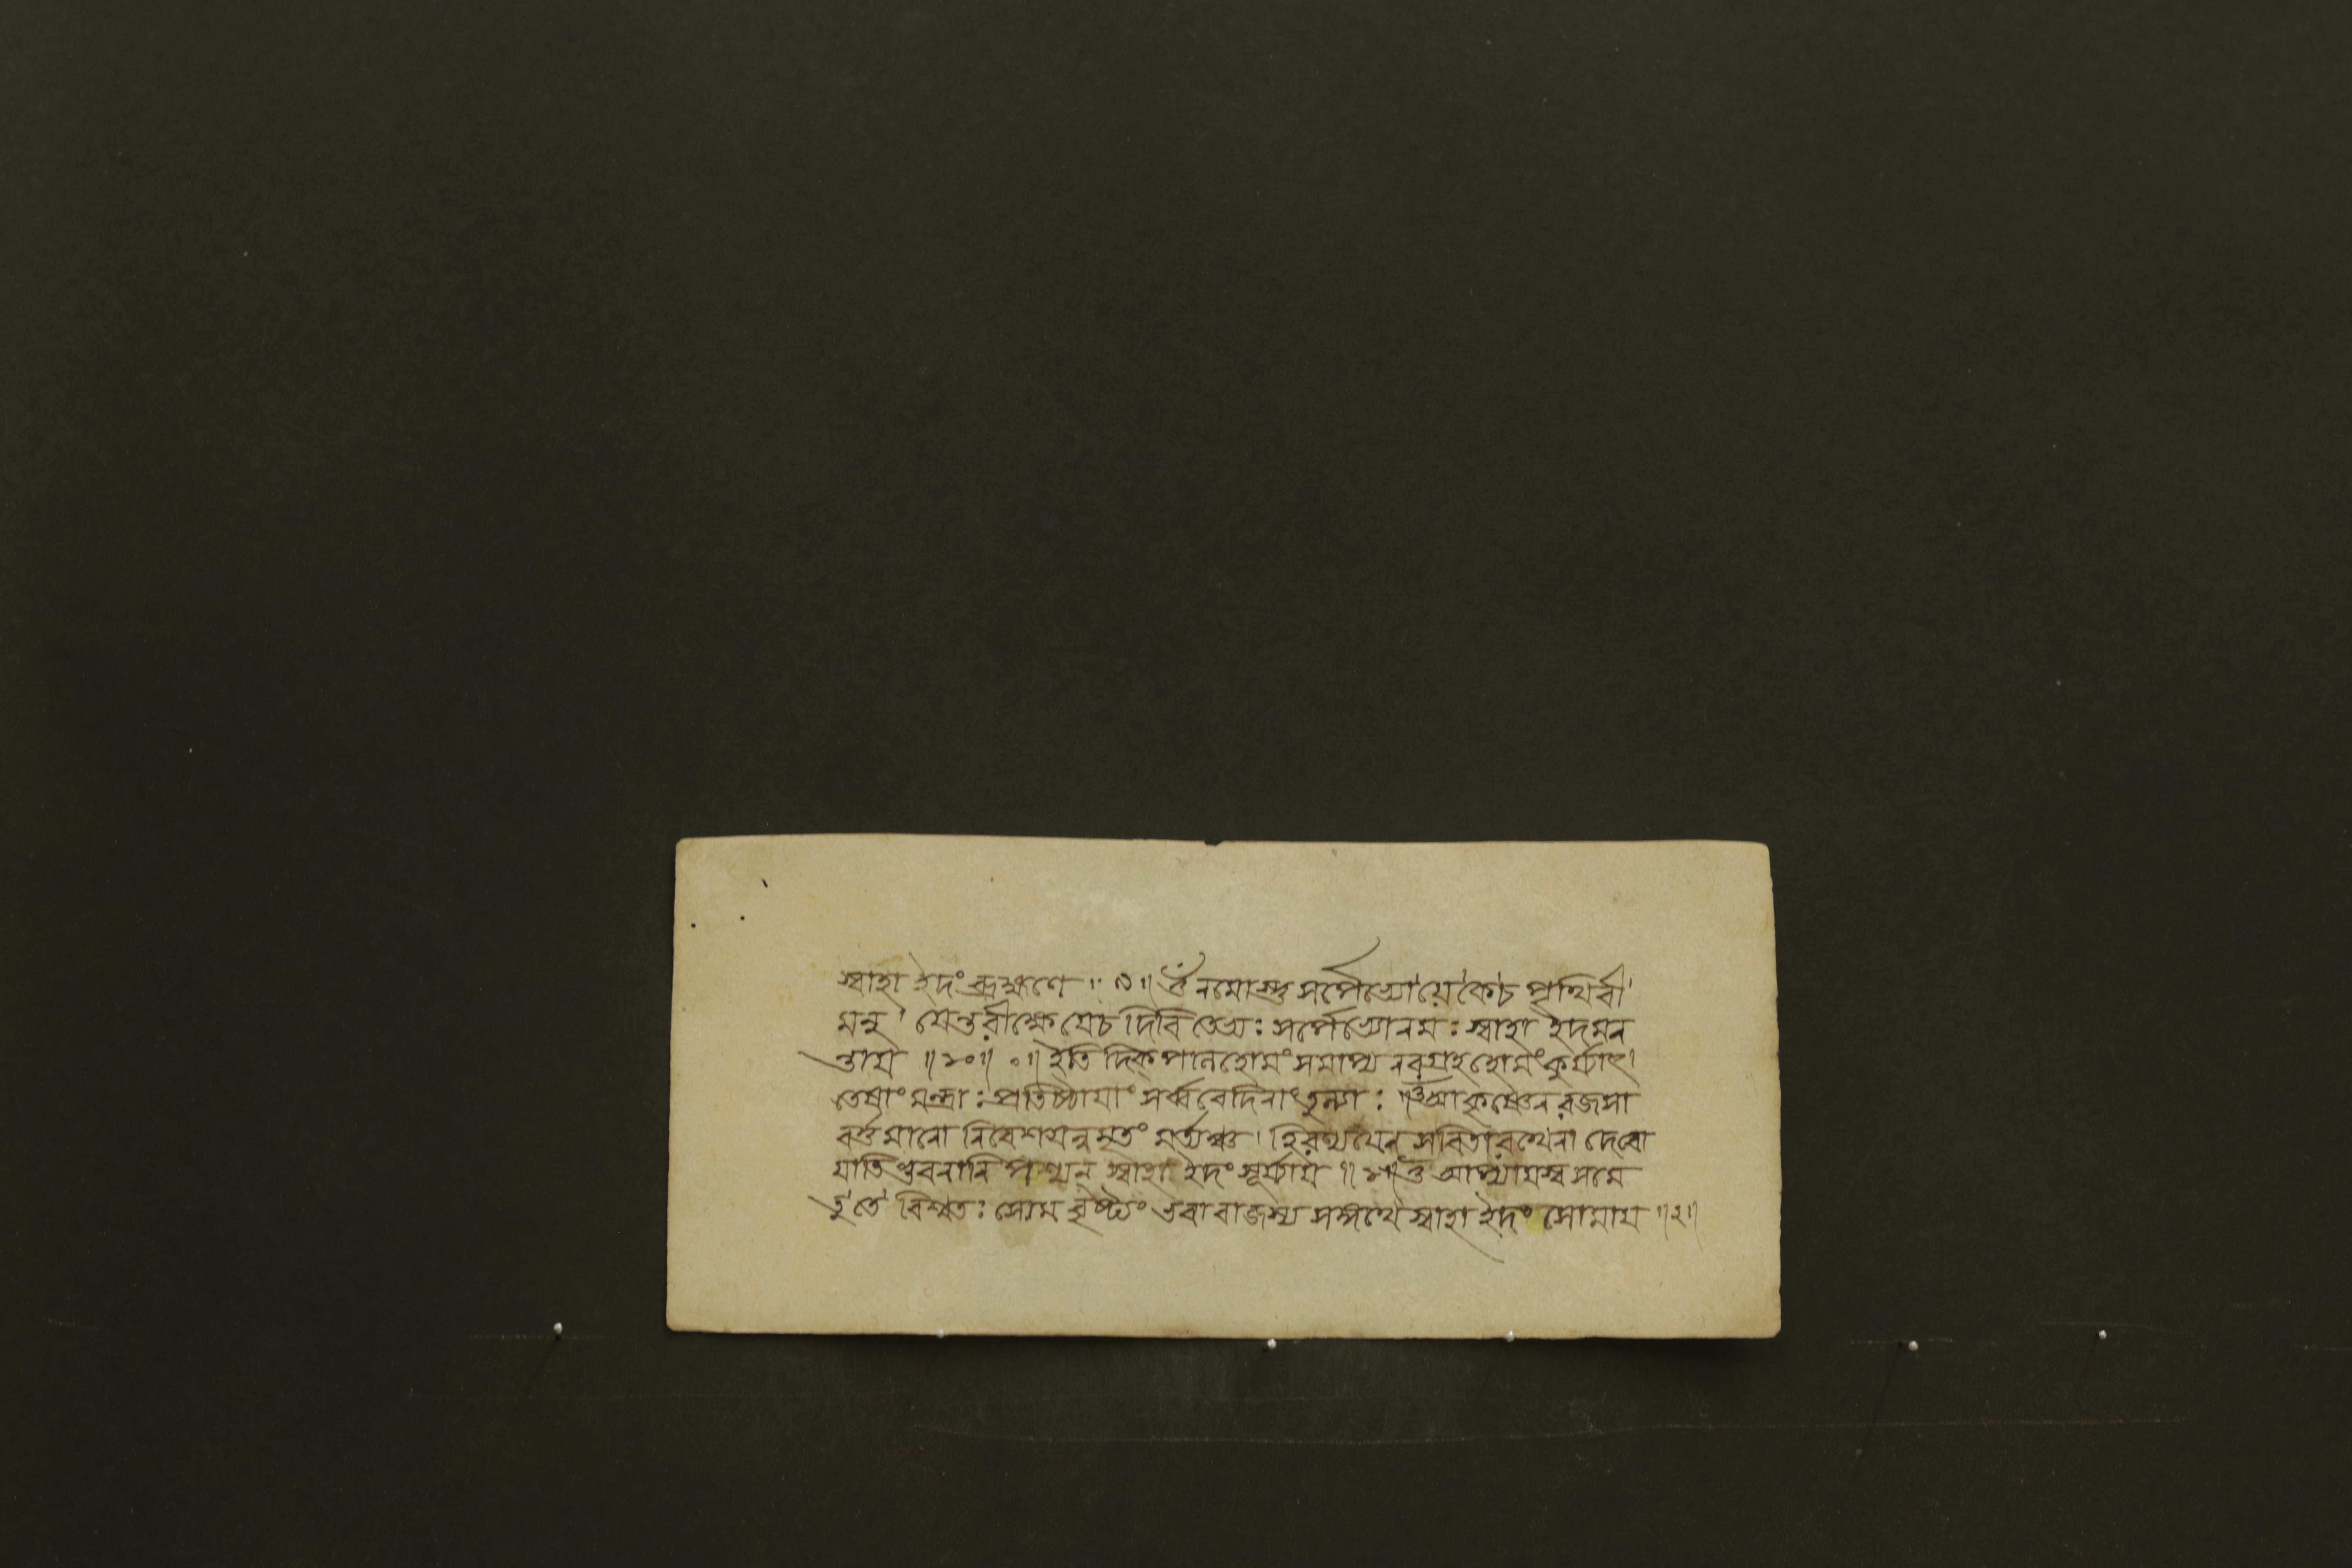 স্বাহা ইদং ব্রহ্মণে ॥ ৯ ॥ ওঁ নমোস্তু সর্পেভ্যো যে কে চ পৃথিবী
মনু । যেন্তরীক্ষে যে চ দিবি তেভ্যঃ সর্পেভ্যো নমঃ স্বাহা ইদমন
ন্তায় ॥ ১০ ॥ ০ ॥ ইতি দিক্পালহোমং সমাপ্য নবগ্রহহোমং কুর্য্যাৎ।
তেষাং মন্ত্রাঃ প্রতিষ্ঠায়াং সর্ব্ববেদিনাং তুল্যাঃ ওঁ আকৃষ্ণেন রজসা
বর্ত্তমানো নিবেশয়ন্নমৃতং মর্ত্যঞ্চ । হিরণ্যয়েন সবিতা রথেনা দেবো
যাতি ভুবনানি পশ্যন স্বাহা ইদং সূর্য্যায় ॥ ১ ॥ ওঁ আপ্যায়স্ব সমে
তু তে বিশ্বতঃ সোম বৃষ্ট্যং ভবা বাজস্য সঙ্গথে স্বাহা ইদং সোমায় ॥ ২ ॥